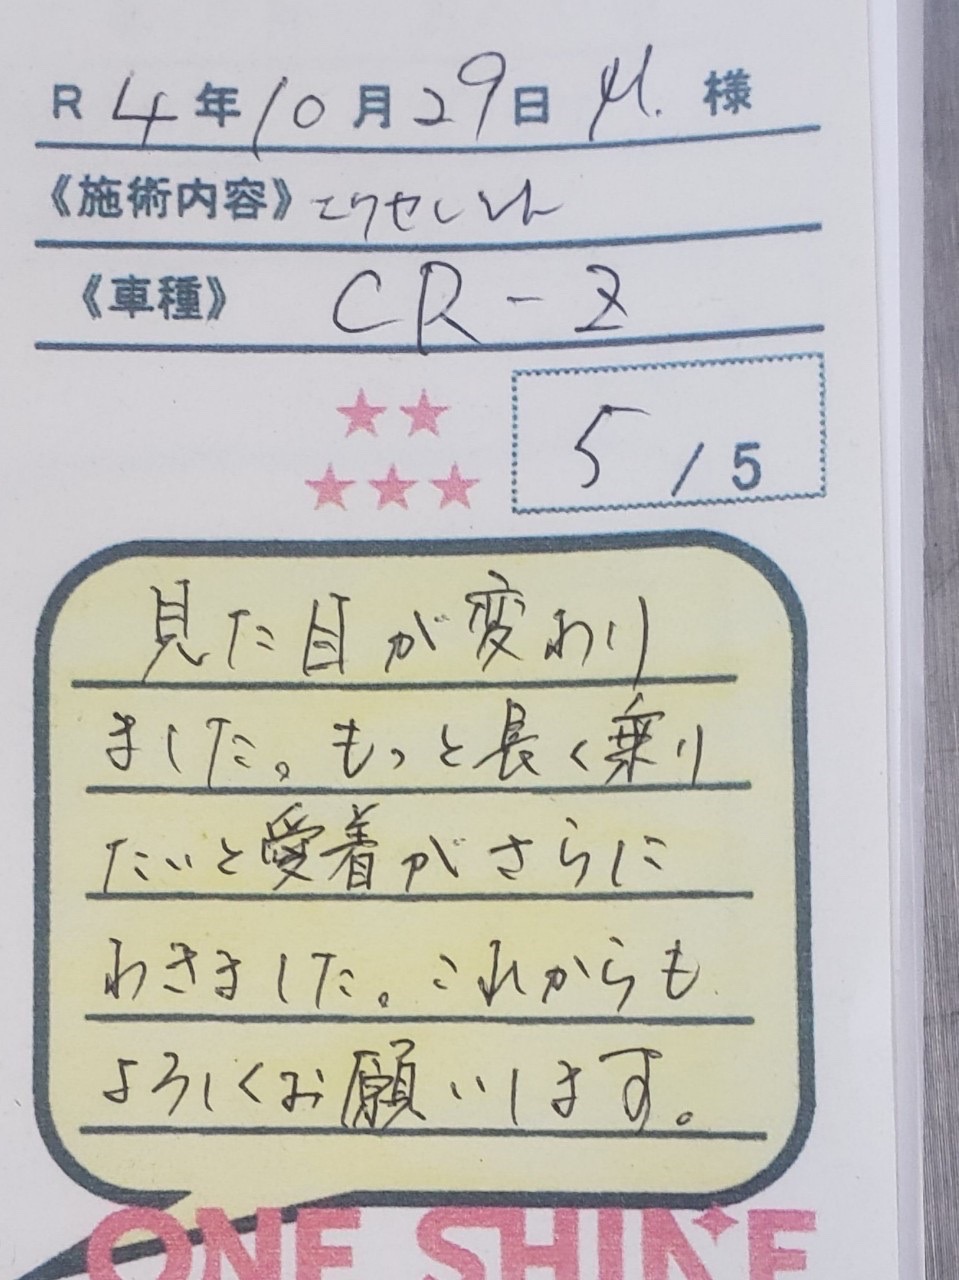 R 4年10月29日 M. 様
《施術内容》エクセレント
《車種》 CR-Z
5 / 5
見た目が変わり
ました。もっと長く乗り
たいと愛着がさらに
わきました。これからも
よろしくお願いします。
ONE SHINE